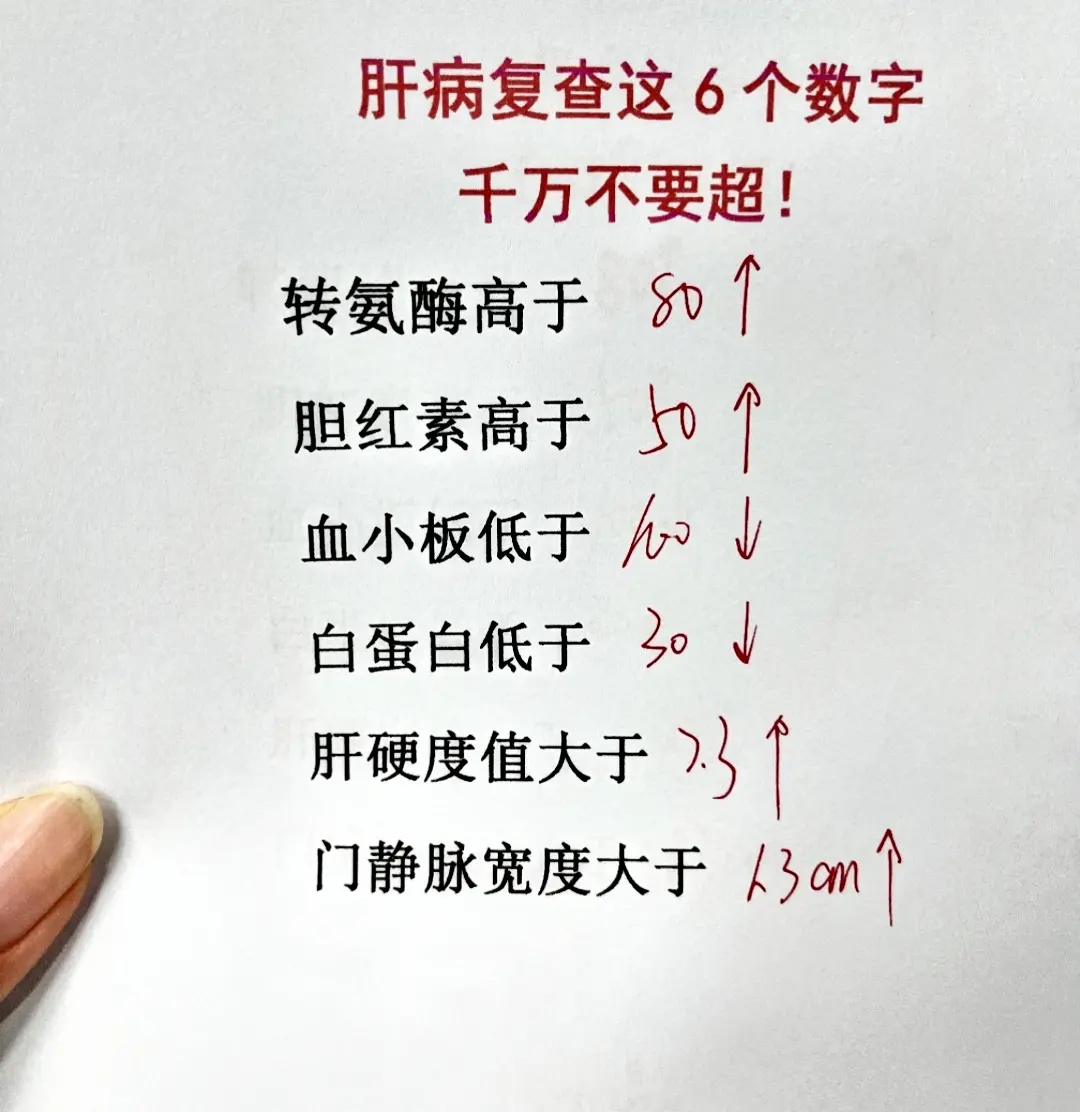 肝病复查这6个数字
千万不要超！
转氨酶高于 80↑
胆红素高于 50↑
血小板低于 100↓
白蛋白低于 30↓
肝硬度值大于 7.3↑
门静脉宽度大于 1.3cm↑